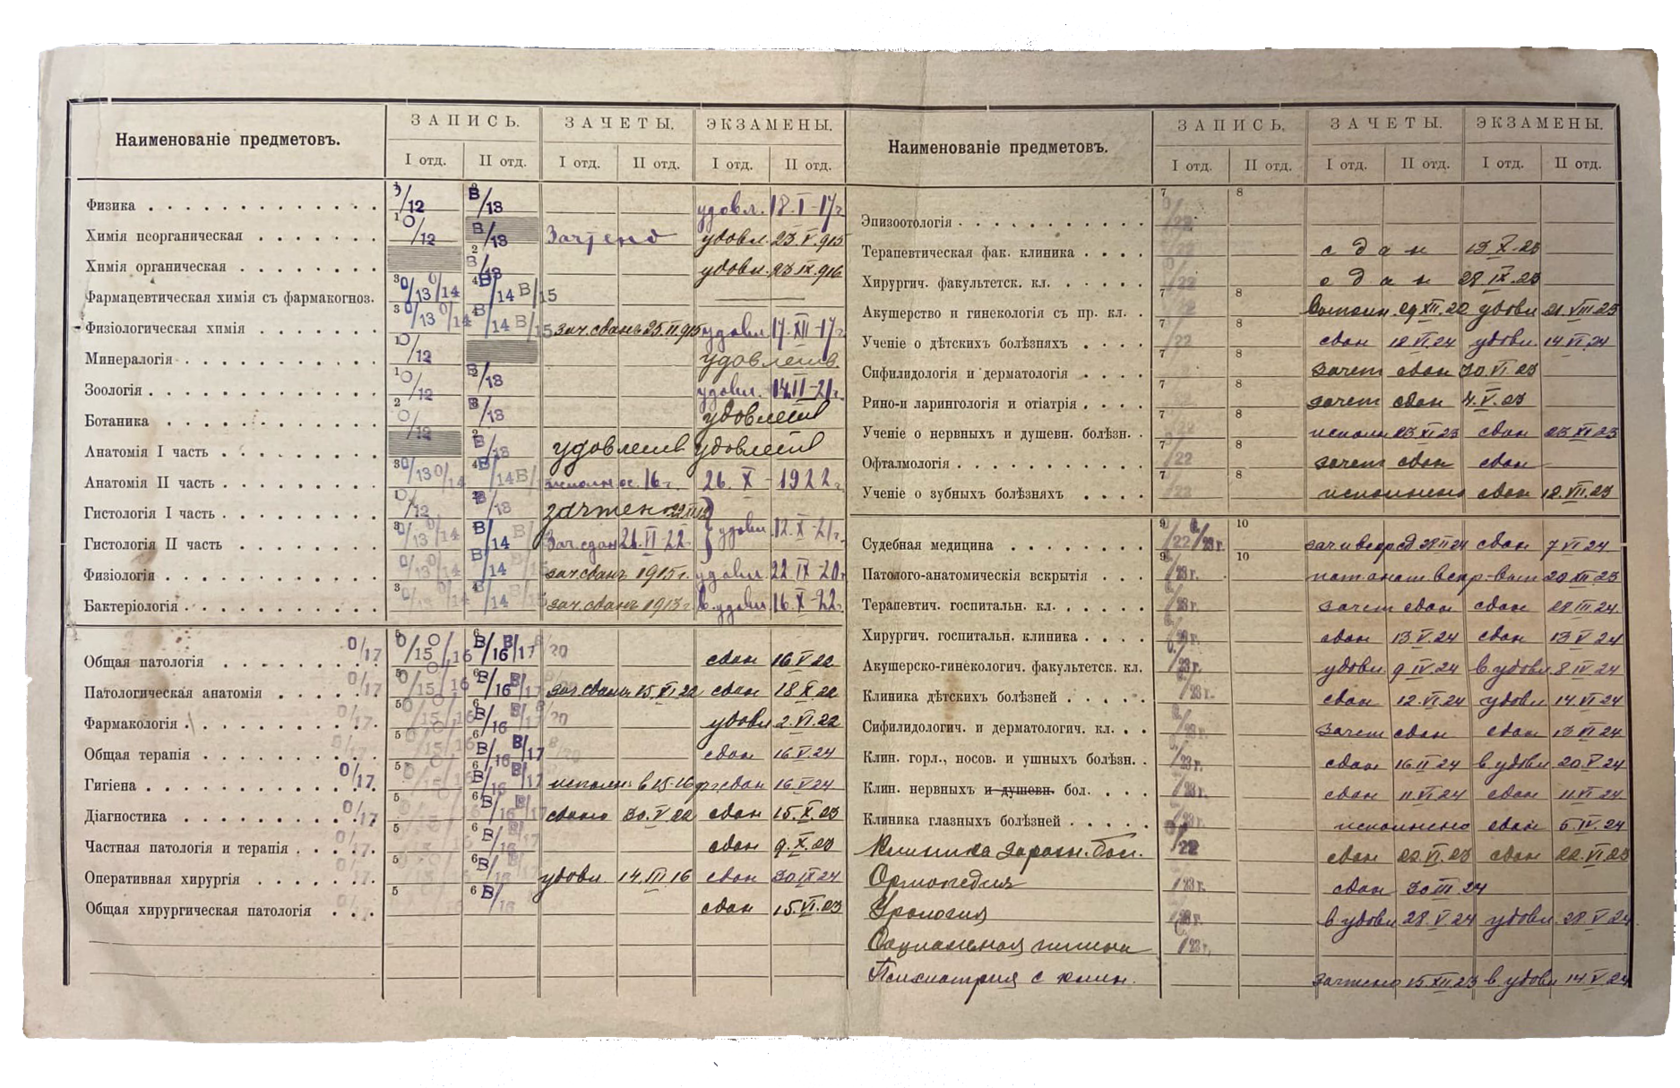 Наименованіе предметовъ. ЗАПИСЬ. ЗАЧЕТЫ. ЭКЗАМЕНЫ.
I отд. II отд. I отд. II отд. I отд. II отд.
Физика O/12 В/13 удовл. 18.I-17г
Химія неорганическая 1 O/12 В/13 Зачтено удовл. 23.V.915
Химія органическая 2 В/13 удовл. 23 IX 916
Фармацевтическая химія съ фармакогноз. 3 O/13 O/14 4 В/14 В/15
Физіологическая химія 3 O/13 O/14 4 В/14 В/15 зач. сданъ 25.II 915 удовл. 17.XII-17г.
Минералогія 1 O/12 удовлетв.
Зоологія 1 O/12 В/13 удовл. 14 II-21г.
Ботаника 2 O/ В/13 удовлетв
Анатомія I часть O/12 2 В/13 удовлетв удовлетв
Анатомія II часть 3 O/13 O/14 4 В/14 В/ исполн ос. 16г. 26. X - 1922г.
Гистологія I часть O/12 В/13 зачтено
Гистологія II часть 3 O/13 O/14 В/14 Зач. сдан 21. VI-22 удовл. 12.X-21г.
Физіологія O/13 O/14 В/14 зач. сданъ 1915г. удовл. 22 IX-20г
Бактеріологія 3 O/13 O/14 4 В/14 В/15 зач. сданъ 1915г. в. удовл. 16.X-22г.
Общая патологія O/17 O/15 O/16 6 В/16 В/17 В/20 сдан 16 V 22
Патологическая анатомія O/17 5 O/15 O/16 6 В/16 В/17 зач. сданъ 15.XI 22 сдан 18 X 22
Фармакологія O/17 5 O/15 O/16 6 В/16 В/ В/20 удовл 2.VI.22
Общая терапія O/17 5 O/15 O/16 6 В/16 В/17 В/20 сдан 16 V 24
Гигіена O/17 5 O/15 O/16 6 В/16 В/17 исполн. в 15-16 сдан 16 V 24
Діагностика O/17 5 O/15 O/16 6 В/16 В/17 сдано 30.V 22 сдан 15. X. 23
Частная патологія и терапія O/17 5 O/15 O/16 6 В/16 В/17 сдан 9. X. 23
Оперативная хирургія O/17 5 6 В/16 удовл 14. III 16 сдан 30 IX 24
Общая хирургическая патологія O/17 5 6 В/16 сдан 15. VI. 23
Наименованіе предметовъ. ЗАПИСЬ. ЗАЧЕТЫ. ЭКЗАМЕНЫ.
I отд. II отд. I отд. II отд. I отд. II отд.
Эпизоотологія 7 /22 8
Терапевтическая фак. клиника /22 сдан 13 X-23
Хирургич. факультетск. кл. /22 сдан 28 IX 23
Акушерство и гинекологія съ пр. кл. 7 /22 8 29 XII. 22 удовл 21. VIII 23
Ученіе о дѣтскихъ болѣзняхъ 7 /22 8 сдан 12 VI 24 удовл 14 VI. 24
Сифилидологія и дерматологія 7 8 зачет сдан 30. VI 23
Рино-и ларингологія и отіатрія 7 8 зачет сдан 4. V. 23
Ученіе о нервныхъ и душевн. болѣзн. 7 /22 8 исполн 23 XI 23 сдан 23 XI 23
Офталмологія 7 /22 8 зачет сдан сдан
Ученіе о зубныхъ болѣзняхъ 7 /22 8 исполнено сдан 12. VII. 23
Судебная медицина 9 /22 /23г. 10 28 II 24 сдан 7 VI 24
Патолого-анатомическія вскрытія 9 /23г. 10 20 XII 23
Терапевтич. госпитальн. кл. /23г. зачет сдан сдан 28 III. 24
Хирургич. госпитальн. клиника /23г. сдан 13 V. 24 сдан 13 V 24
Акушерско-гинекологич. факультетск. кл. /23г. удовл 9 IV 24 в. удовл. 8 IV 24
Клиника дѣтскихъ болѣзней /23г. сдан 12. VI 24 удовл 14. VI 24
Сифилидологич. и дерматологич. кл. /23г. зачет сдан сдан 13 VI 24
Клин. горл., носов. и ушныхъ болѣзн. /23г. сдан 16 II 24 в удовл 20 V 24
Клин. нервныхъ и душевн. бол. /23г. сдан 11 VI 24 сдан 11 VI 24
Клиника глазныхъ болѣзней /23г. исполнено сдан 6 IV. 24
Клиника заразн. бол. O/22 сдан 22. VI. 23 сдан 22. VI 23
Ортопедия /23г. сдан 30 III 24
Урология /23г. в удовл 28 V 24 удовл. 28 V 24
Социальная гигиена /23г.
Психиатрия с клин. зачтено 15 XII 23 в удовл 14 V 24